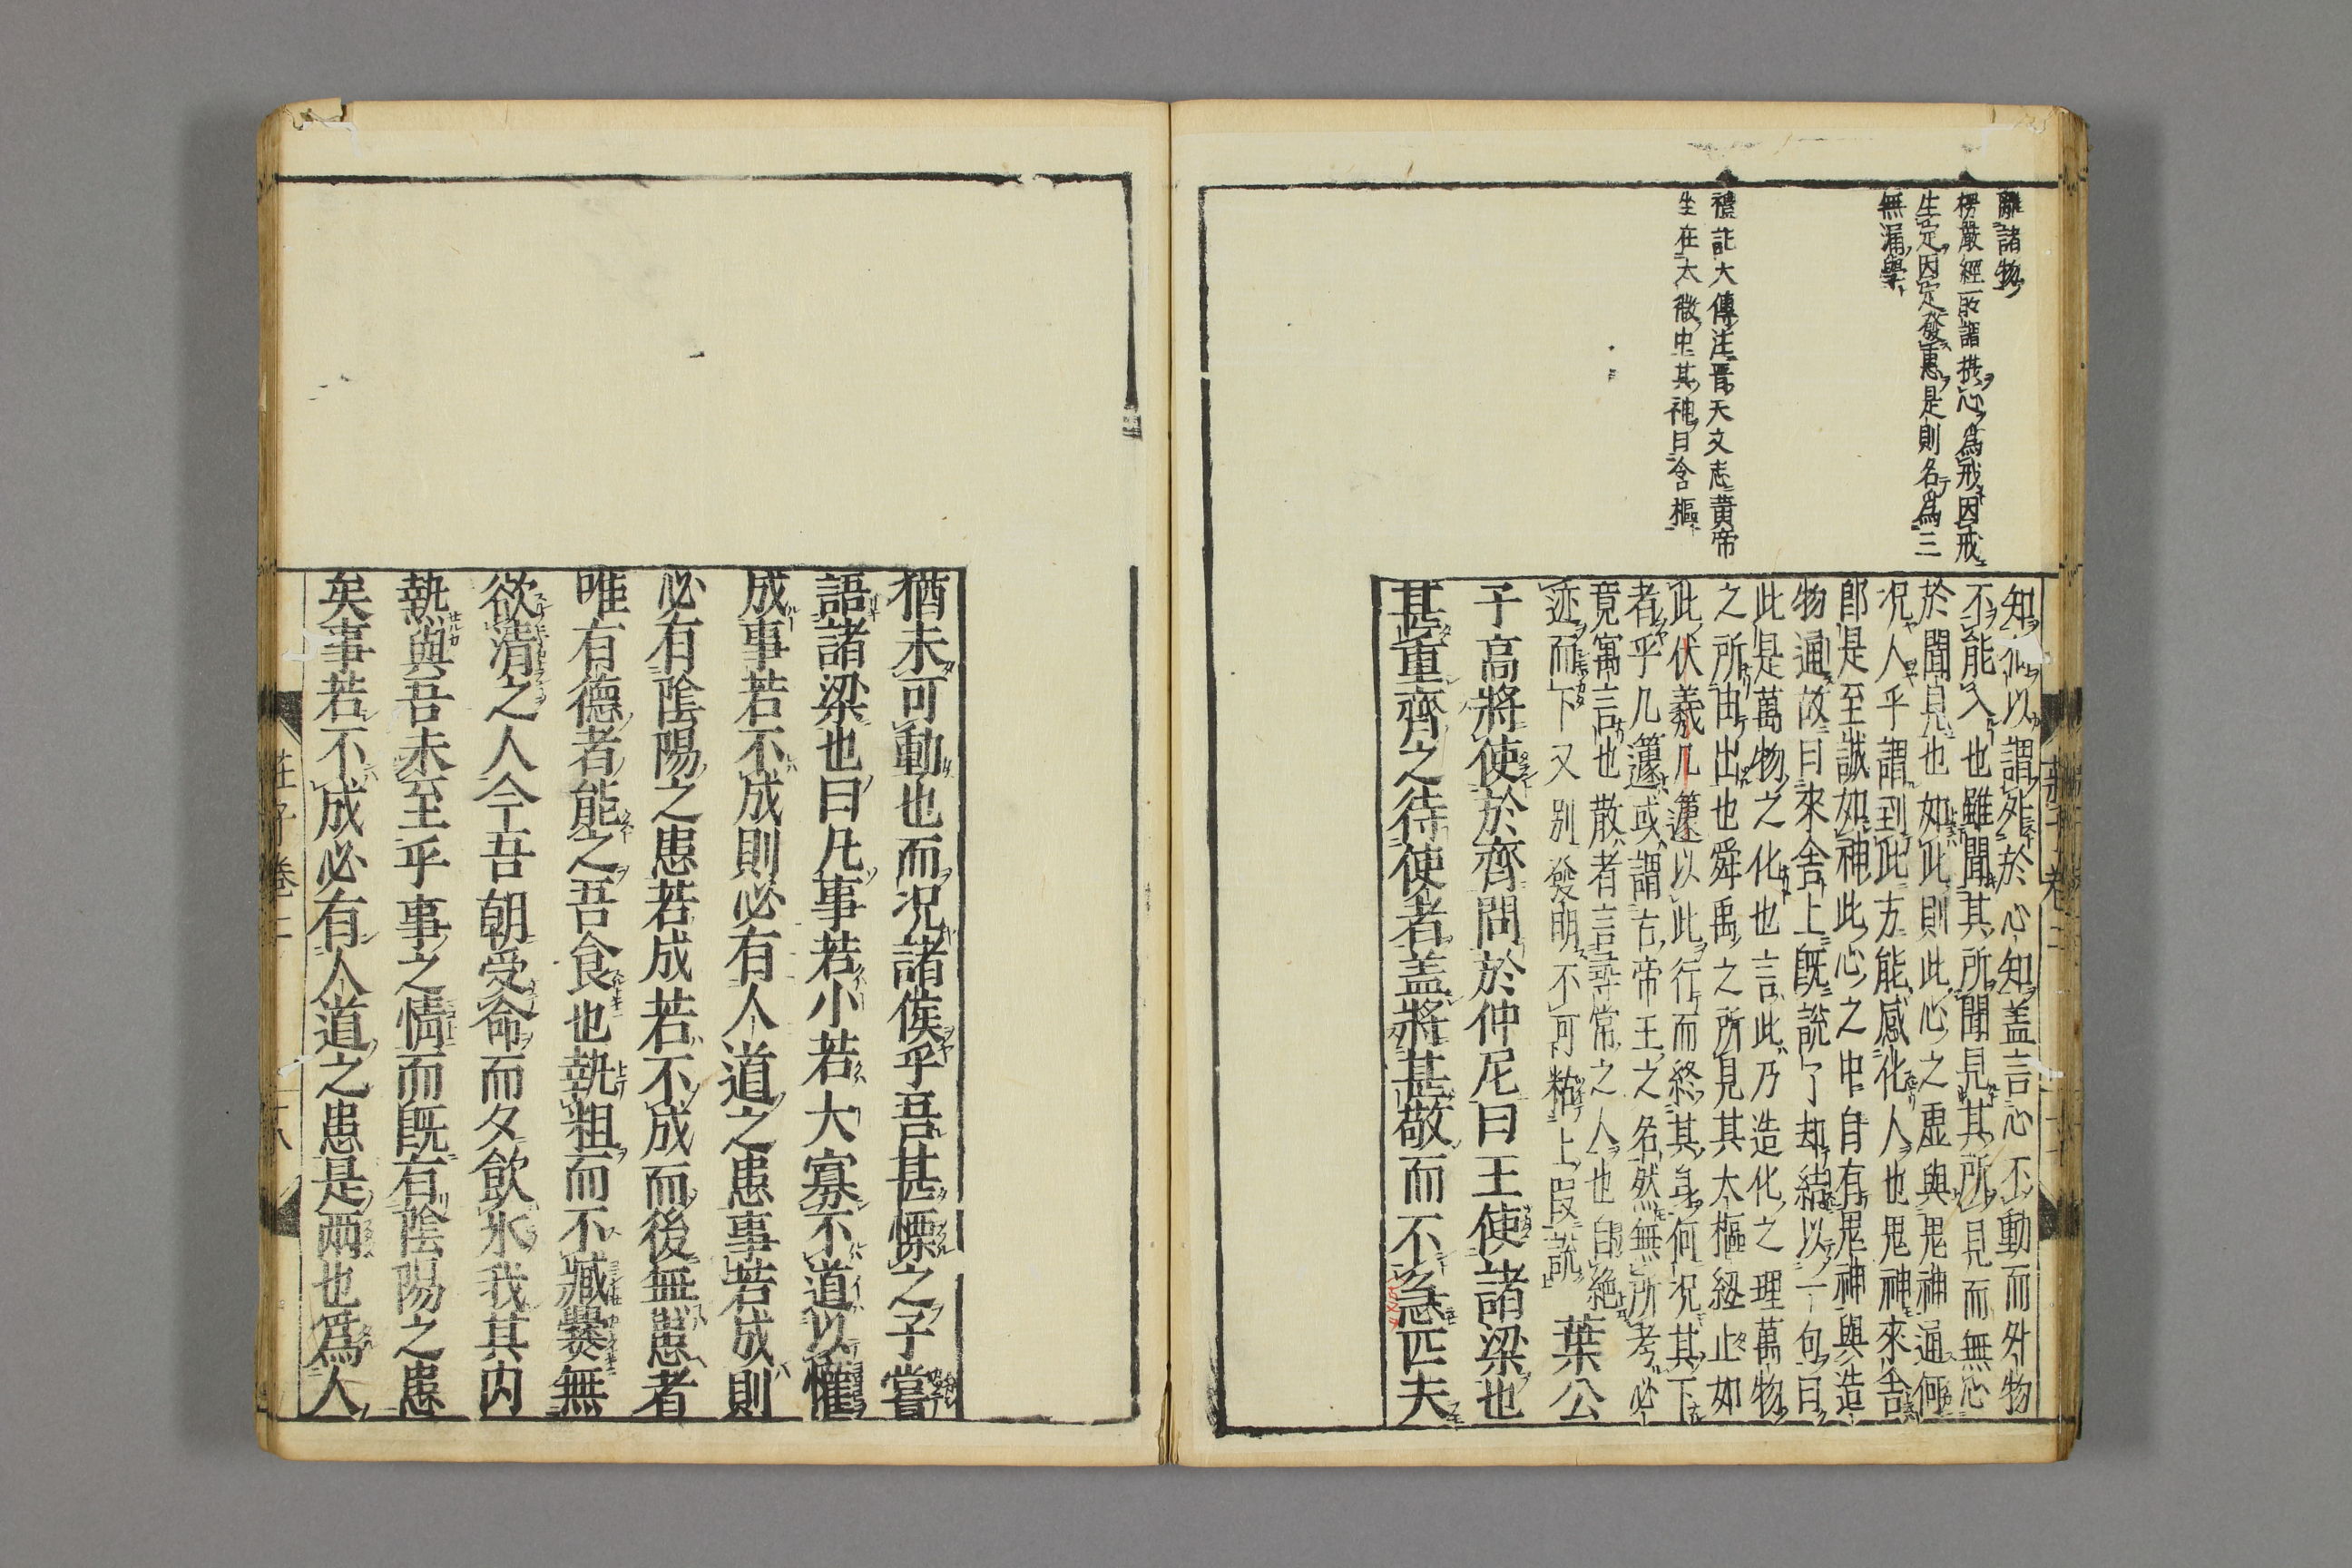 離諸物
楞嚴經所謂攝心爲戒因戒
生定因定發惠是則名爲三
無漏學
禮記大傳注晋天文志黄帝
坐在太微中其神曰含樞
知徇以謂外於心知盖言心不動而外物
不能入也雖聞其所聞見其所見而無心
於聞見也如此則此心之虚與鬼神通何
况人乎謂到此方能感化人也鬼神來舎
即是至誠如神此心之中自有鬼神與造
物通故曰來舎上既說了却結以一句曰
此是萬物之化也言此乃造化之理萬物
之所由出也舜禹之所見其大樞紐止如
此伏羲几蘧以此行而終其身何况其下
者乎几蘧或謂古帝王之名然無所考必
竟寓言也散者言尋常之人也自絶
迹而下又別發明不可粘上叚說 葉公
子高將使於齊問於仲尼曰王使諸梁也
甚重齊之待使者盖將甚敬而不急匹夫
莊子卷二
猶未可動也而况諸侯乎吾甚慄之子嘗
語諸梁也曰凡事若小若大寡不道以懽
成事若不成則必有人道之患事若成則
必有陰陽之患若成若不成而後無患者
唯有德者能之吾食也執粗而不臧爨無
欲清之人今吾朝受命而夕飲氷我其内
熱與吾未至乎事之情而既有陰陽之患
矣事若不成必有人道之患是兩也爲人
莊子卷二